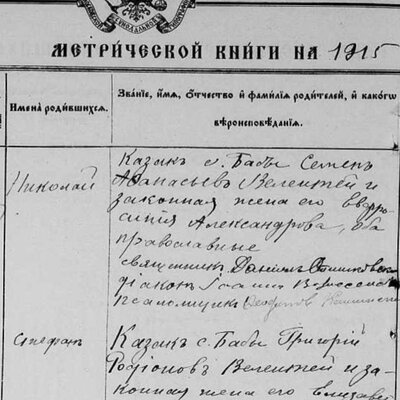 МЕТРИ́ЧЕСКОЙ КНИ́ГИ НА 1915
Имена̀ роди́вшихся.
Зва́ніе, и́мя, о́тчество и фами́лія роди́телей, и како́гѡ
вѣроисповѣ́данія.
Николай
Казакъ с. Бабы Семенъ
Аѳанасьевъ Велентей и
законная жена его Евфро-
синія Александрова, оба
православные
священникъ Даніилъ
діаконъ Іоаннъ
псаломщикъ
Стефанъ
Казакъ с. Бабы Григорій
Родіоновъ Велентей и за-
конная жена его Елизаве